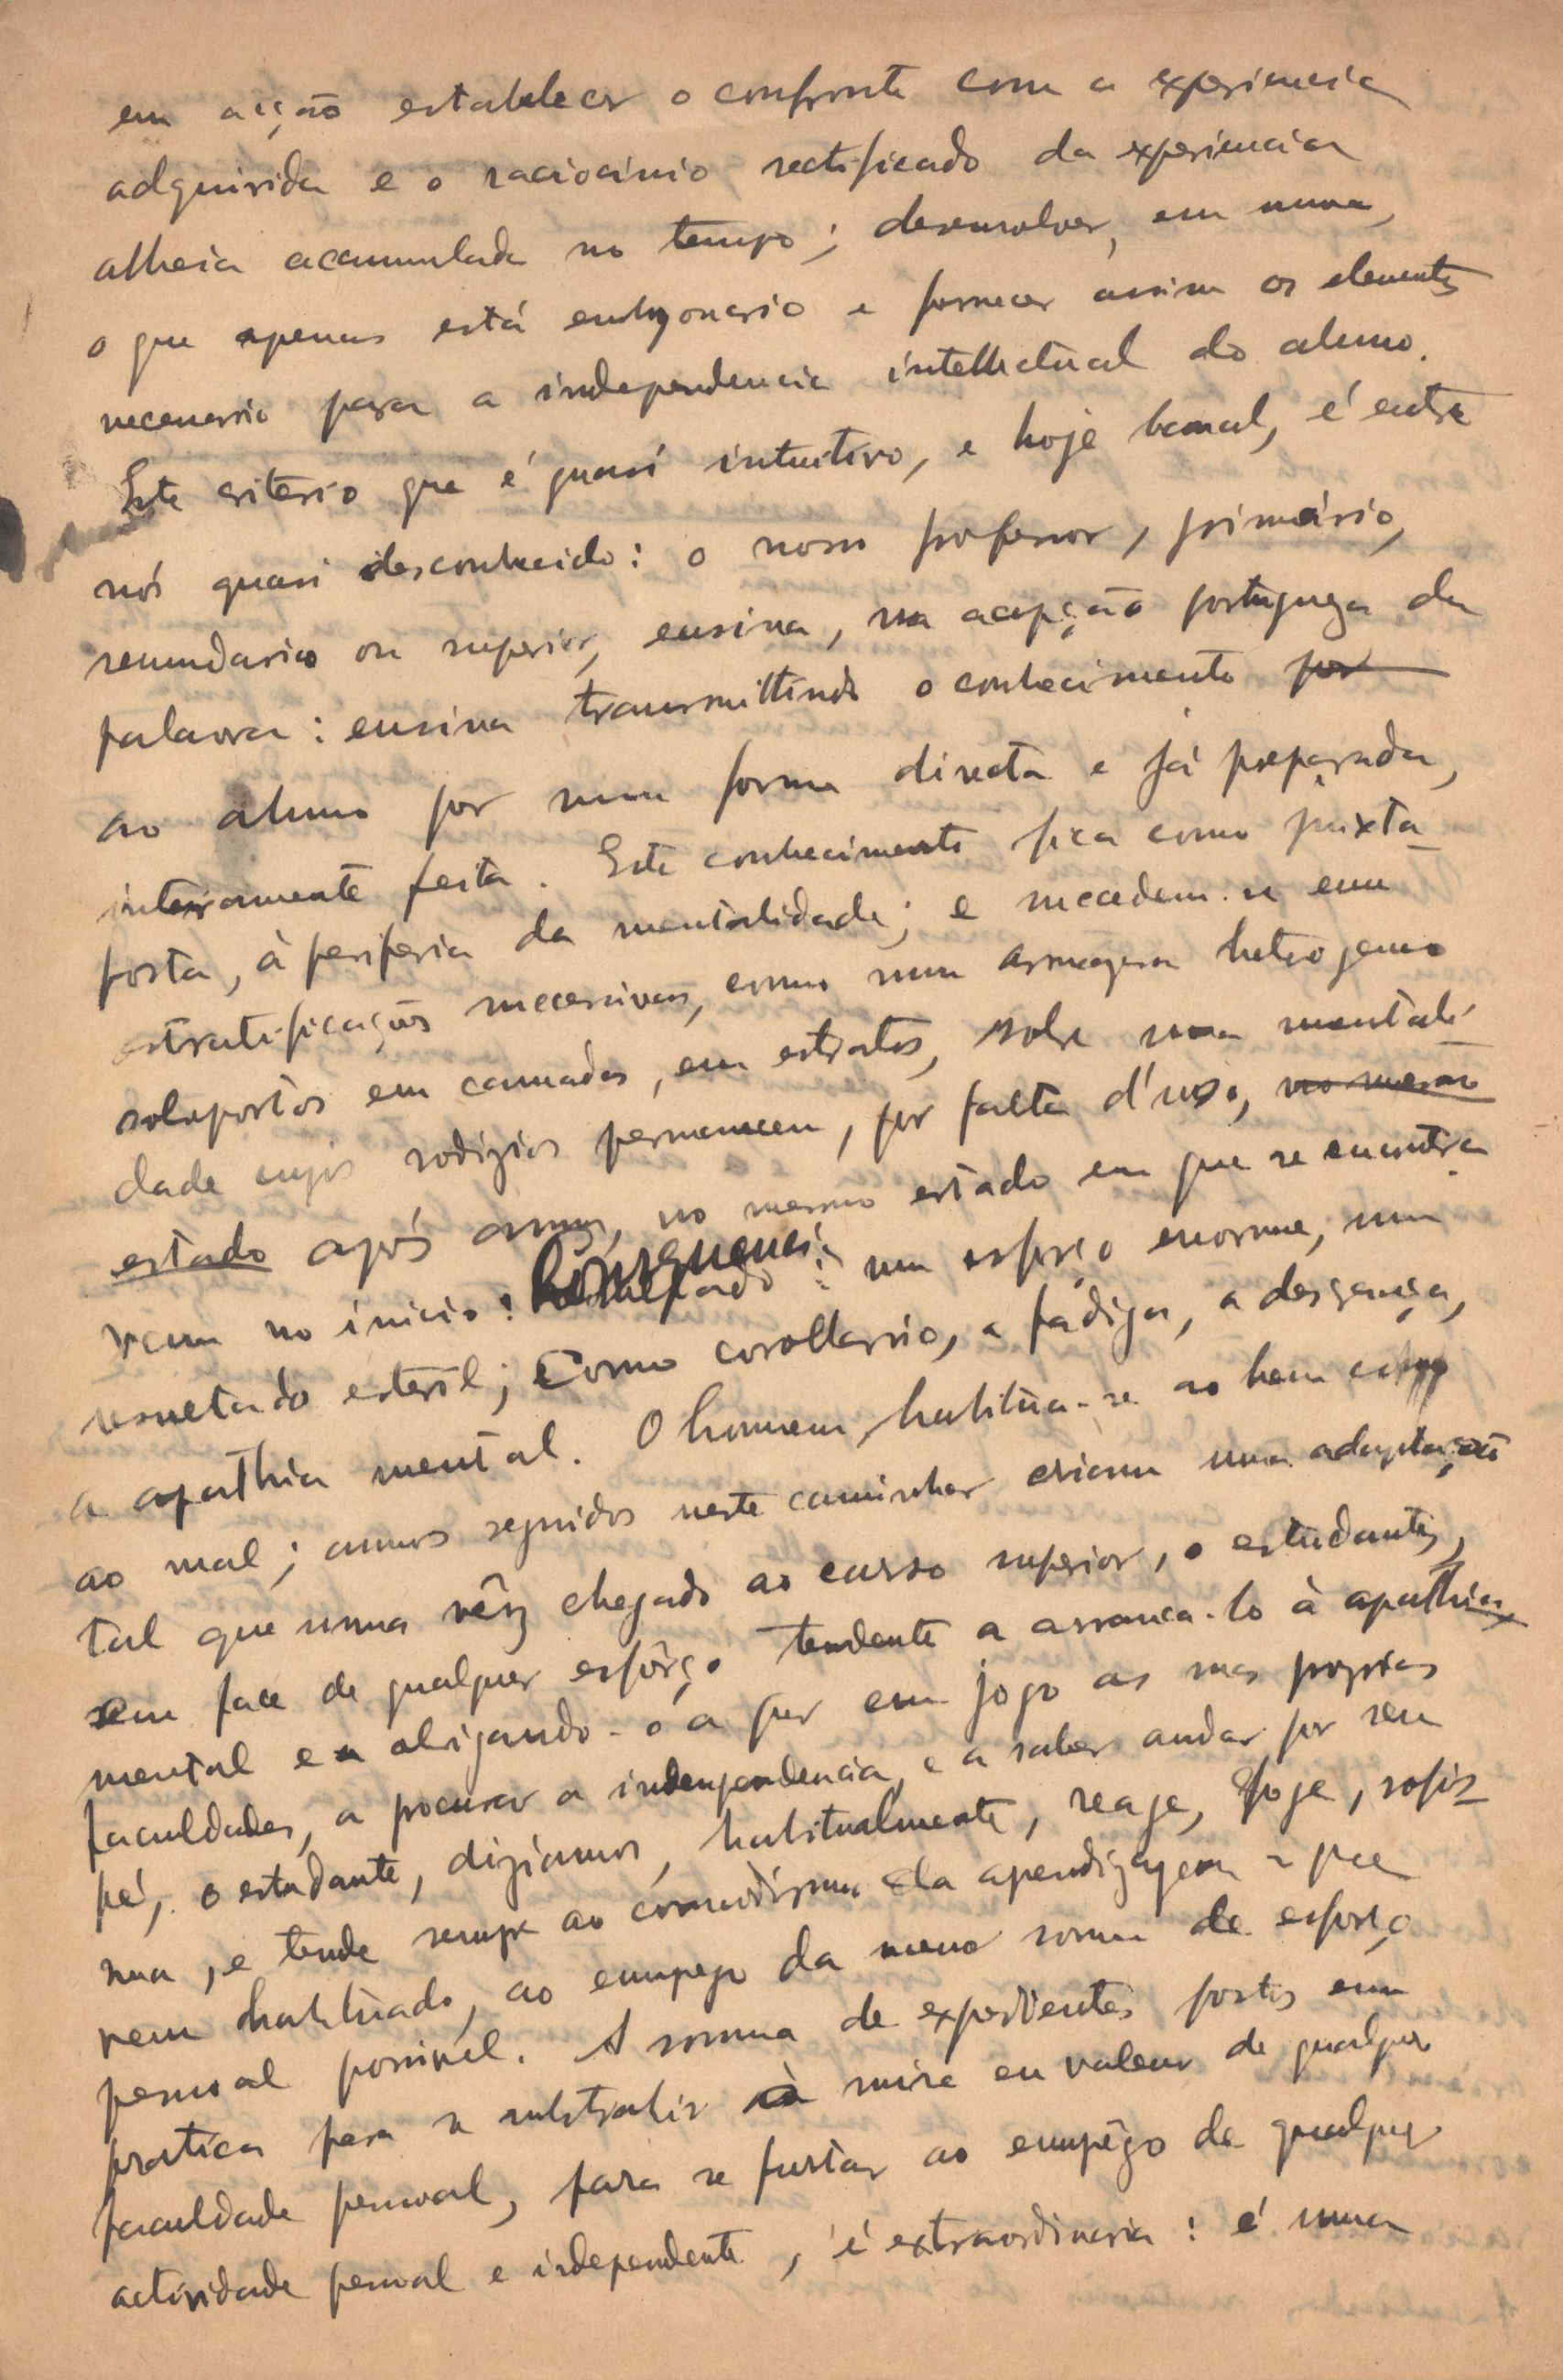 em acção estabelecer o confronto com a experiencia
adquirida e o raciocinio rectificado da experiencia
alheia accumulada no tempo; desenvolver, em summa,
o que apenas está embryonario e fornecer assim os elementos
necessario para a independencia intellectual do alumno.
Este criterio que é quasi intuitivo, e hoje banal, é entre
nós quasi desconhecido: o nosso professor, primário,
secundario ou superior, ensina, na acepção portugueza da
palavra: ensina transmittindo o conhecimento por
ao alumno por uma forma directa e já preparada,
inteiramente feita. Este conhecimento fica como juxta-
posta, à periferia da mentalidade; e succedem-se em
estratificações successivas, como num armazem heterogeneo
sobrepostos em camadas, em estratos, sobre uma mentali-
dade cujos rodizios permanecem, por falta d'uso, no mesmo
estado após annos, no mesmo estado em que se encontra
vam no inicio! Consequencia: um esforço enorme, um
resultado esteril; Como corollario, a fadiga, a descrença,
a apathia mental. O homem habitúa-se ao bem como
ao mal; annos seguidos neste caminhar criam uma adaptação
tal que uma vêz chegado ao curso superior, o estudante,
em face de qualquer esfôrço tendente a arranca-lo à apathia
mental e a obrigando-o a pôr em jogo as suas proprias
faculdades, a procurar a independencia e a saber andar por seu
pé, o estudante, diziamos, habitualmente, reage, foge, sofis-
ma, e tende sempre ao comodismo da aprendizagem a que
vem habituado, ao emprego da menor somma de esforço
pessoal possivel. A somma de expedientes postos em
pratica para se subtrahir à mise en valeur de qualquer
faculdade pessoal, para se furtar ao emprêgo de qualquer
actividade pessoal e independente, é extraordinaria: é uma